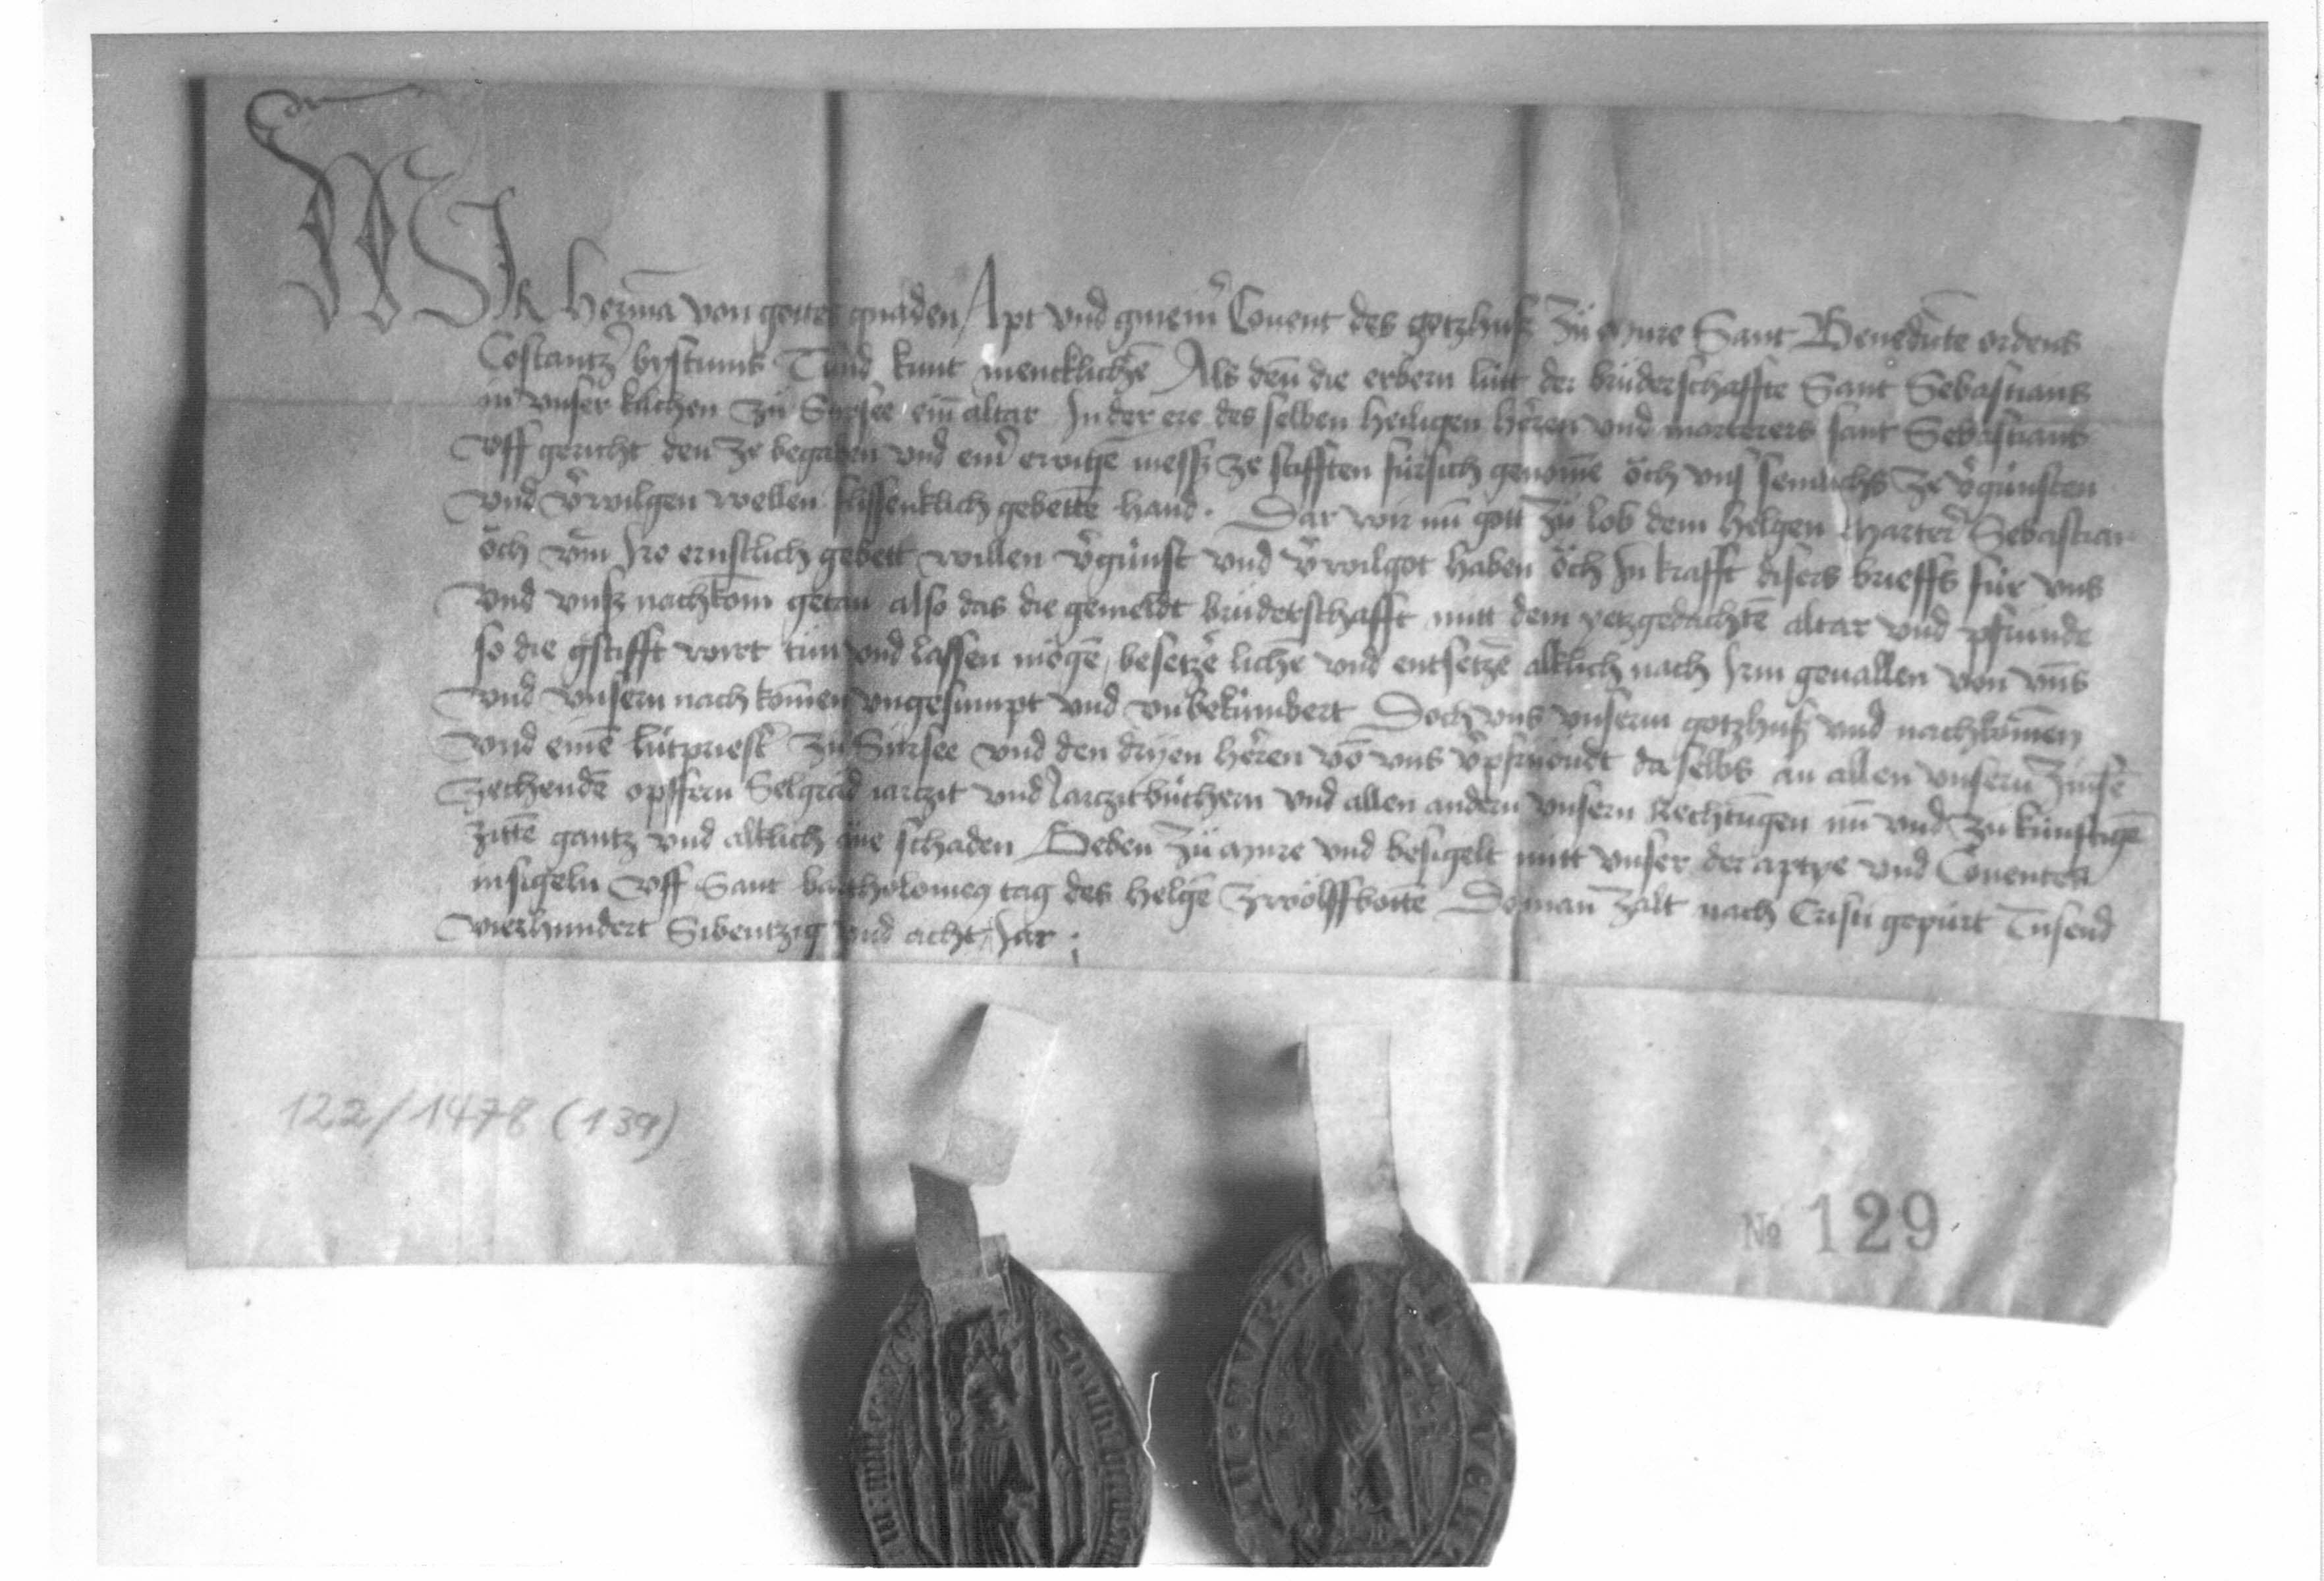 WIR herma von gottes gnaden Apt vnd gmein Conent des gotzhuß zů Mure Sant Benedicte ordens
Costantz bystums Tůnd kunt mencklichē Als denn die erbern lütt der brüderschaffte Sant Sebastians
in vnser kilchen zů Sursee ein altar In der ere des selben heiligen herren vnd marterers sant Sebastians
vff gericht den ze begaben vnd ein ewige meß ze stifften fürsich genome öch vns semlichs ze vgünsten
vnd vwilgen wellen flissenklich gebette hand. Dar wir nu gott zů lob dem helgen Marter Sebastian
öch vm Ire ernstlich gebett willen vgünst vnd vwilgot haben öch In krafft disers brieffs für vns
vnd vnß nachkom getan also das die gemeldt brüderschafft mitt dem yetzgedachtē altar vnd pfründe
so die gstifft wirt tůn vnd lassen mögē besetzē lichē vnd entsetzē alklich nach Irm genallen von vns
vnd vnsern nachkomen vngesumpt vnd vnbekümbert Doch vns vnserm gotzhuß vnd nachkomen
vnd einē lütpriest zů Sursee vnd den dryen herren vō vns vpfrůndt daselbs an allen vnsern zinsē
zechendē opffern Selgräd iarczit vnd Jarczitbüchern vnd allen andern vnsern Rechtungen nu vnd zu künftigē
zittē gantz vnd alklich ane schaden Geben zů Mure vnd besigelt mitt vnser der aptye vnd Conentes
insigeln vff Sant bartholomeg tag des helgē zwölffbottē Do man zalt nach Cristi gepürt Tusend
vierhundert Sibentzig vnd acht Jar
122/1478 (139)
№ 129